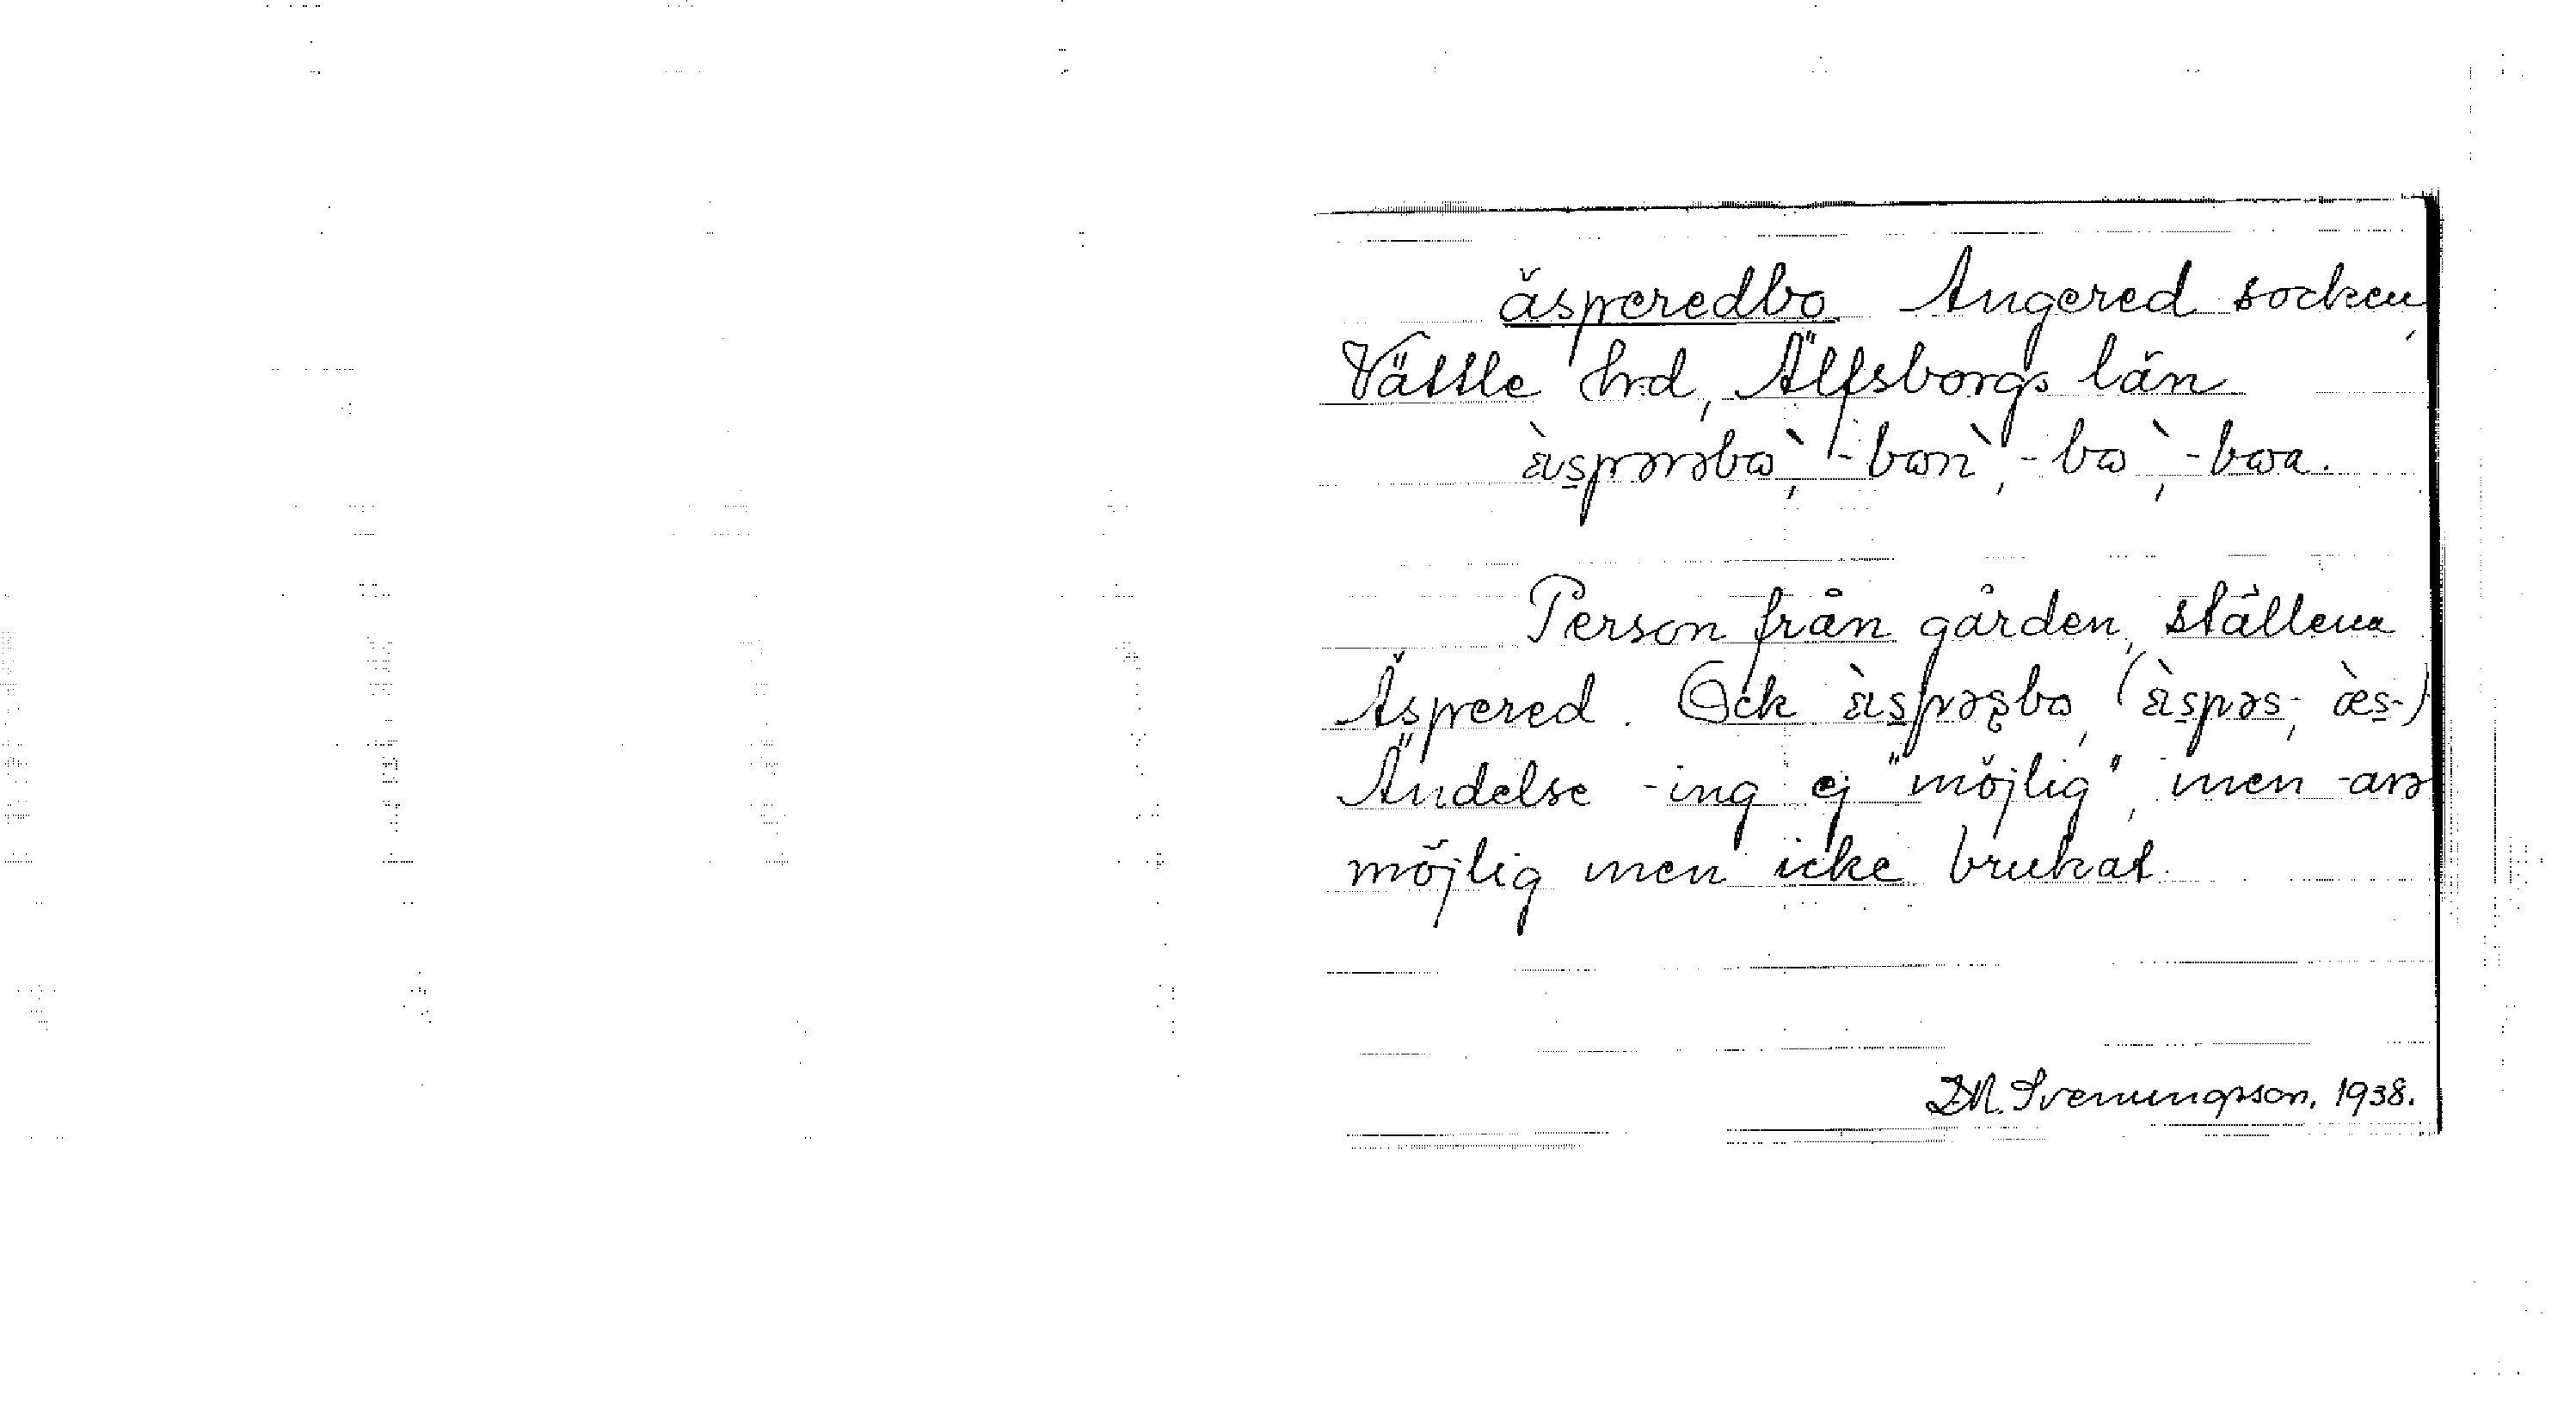 äsperedbo. Angered socken,
Vättle hrd, Älfsborgs län
ä̀s̲pərəbɷ̀, -bɷǹ, -bɷ̀, -bɷa.
Person från gården, ställena
Äspered. Ock
Ändelse -ing ej "möjlig", men -arə
möjlig men icke brukat.
D.N. Svenningsson. 1938.